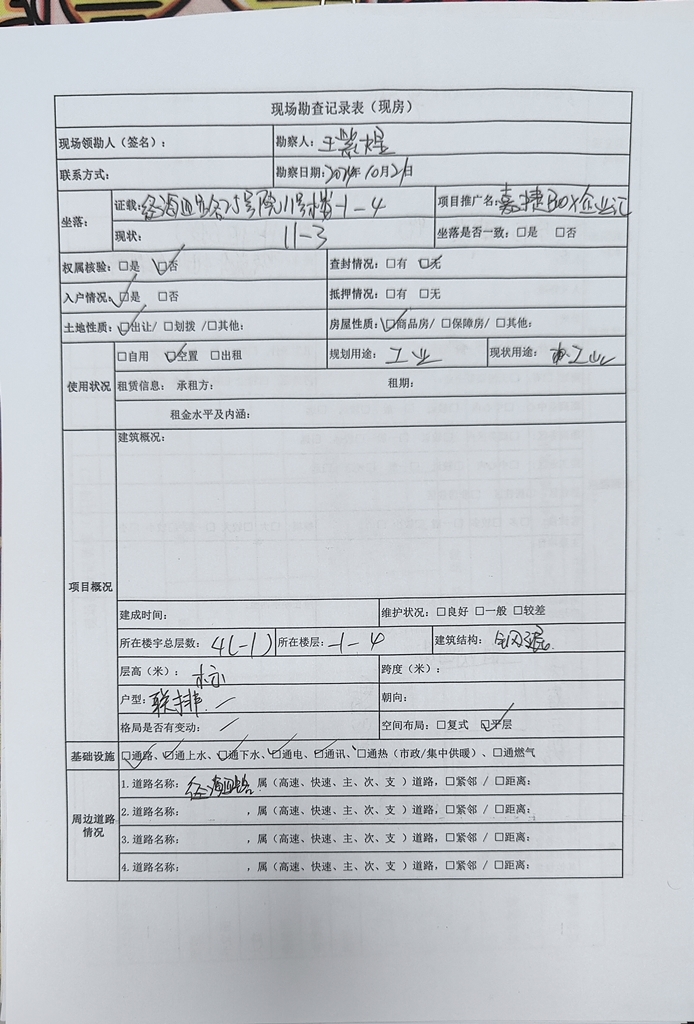 现场勘查记录表（现房）
现场领勘人（签名）： 勘察人：王
联系方式： 勘察日期：2024年10月21日
坐落： 证载：经海四路 号院11号楼-1-4 项目推广名：嘉捷BOX企业汇
现状：11-3 坐落是否一致：□是 □否
权属核验：□是 ☑否 查封情况：□有 ☑无
入户情况：☑是 □否 抵押情况：□有 □无
土地性质：☑出让/ □划拨 /□其他： 房屋性质：☑商品房/ □保障房/ □其他：
使用状况 □自用 ☑空置 □出租 规划用途：工业 现状用途：工业
租赁信息： 承租方： 租期：
租金水平及内涵：
项目概况 建筑概况：
建成时间： 维护状况：□良好 □一般 □较差
所在楼宇总层数：4(-1) 所在楼层：-1-4 建筑结构：钢混
层高（米）：标 跨度（米）：
户型：联排 朝向：
格局是否有变动： 空间布局：□复式 ☑平层
基础设施 ☑通路、☑通上水、☑通下水、☑通电、☑通讯、□通热（市政/集中供暖）、□通燃气
周边道路情况 1.道路名称：经海四路，属（高速、快速、主、次、支 ）道路，□紧邻 / □距离：
2.道路名称： ，属（高速、快速、主、次、支 ）道路，□紧邻 / □距离：
3.道路名称： ，属（高速、快速、主、次、支 ）道路，□紧邻 / □距离：
4.道路名称： ，属（高速、快速、主、次、支 ）道路，□紧邻 / □距离：